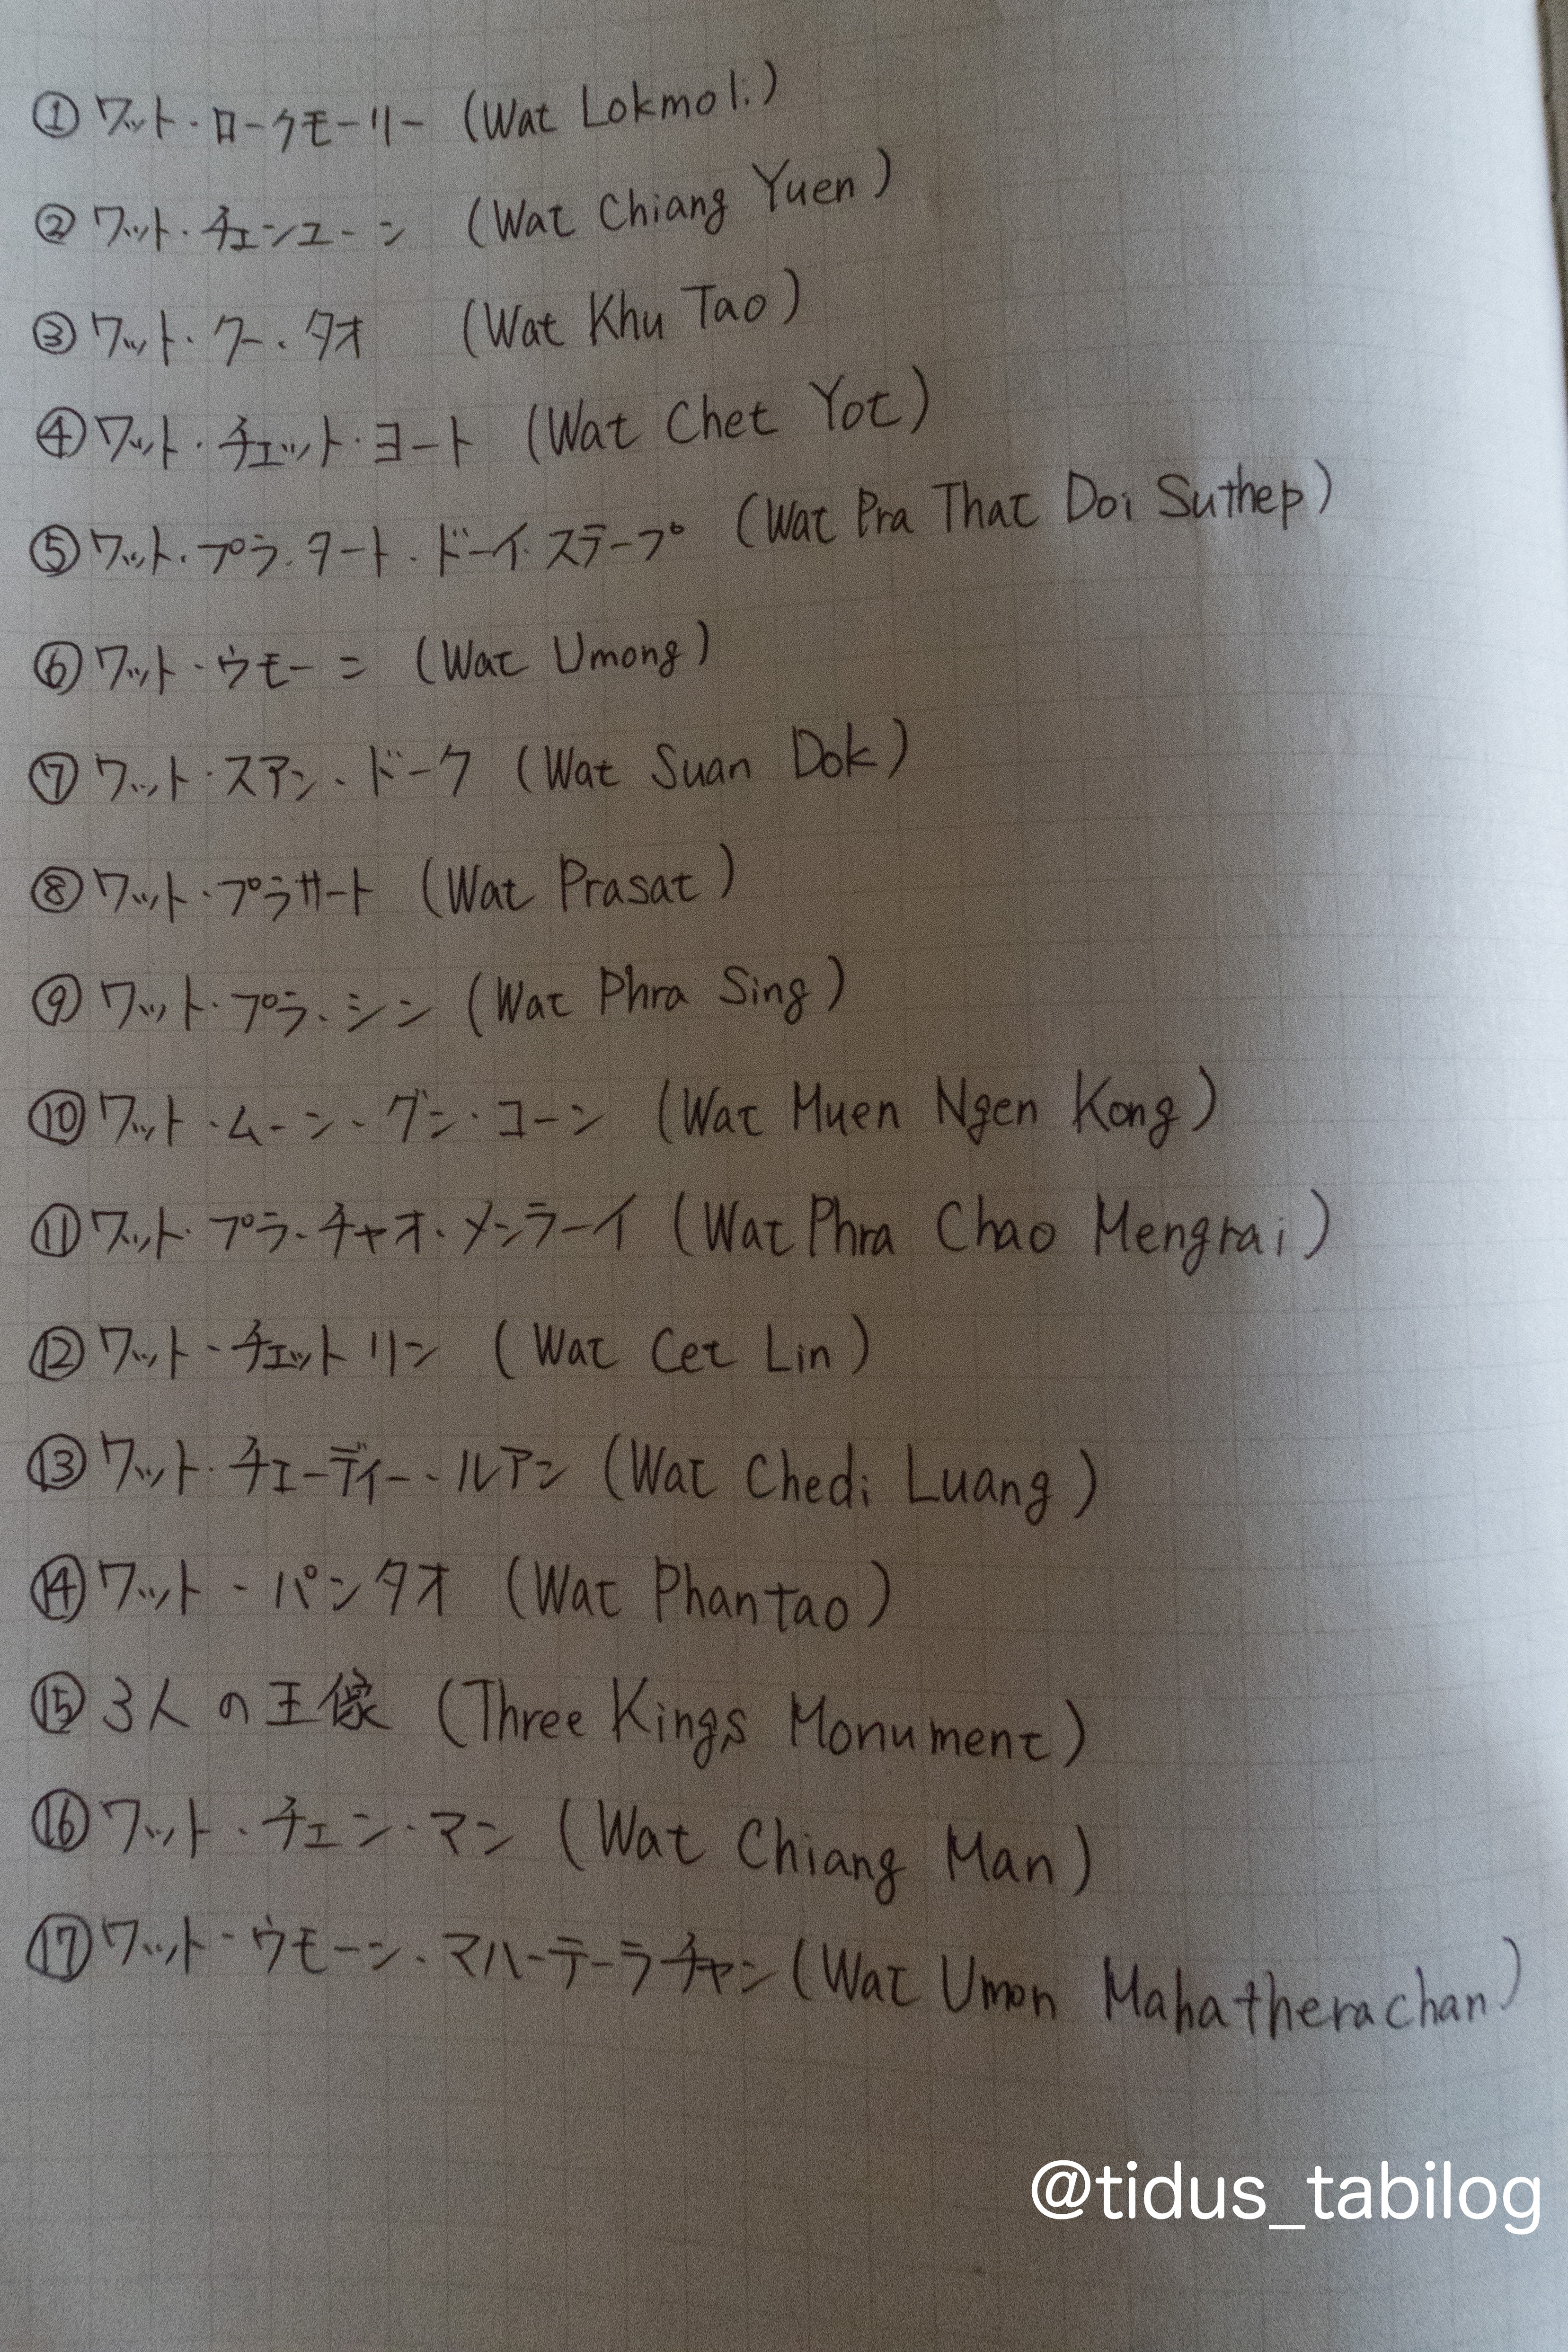 ① ワット・ロークモーリー (Wat Lokmoli)
② ワット・チェンユーン (Wat Chiang Yuen)
③ ワット・クー・タオ (Wat Khu Tao)
④ ワット・チェット・ヨート (Wat Chet Yot)
⑤ ワット・プラ・タート・ドーイ・ステープ (Wat Pra That Doi Suthep)
⑥ ワット・ウモーン (Wat Umong)
⑦ ワット・スアン・ドーク (Wat Suan Dok)
⑧ ワット・プラサート (Wat Prasat)
⑨ ワット・プラ・シン (Wat Phra Sing)
⑩ ワット・ムーン・グン・コーン (Wat Muen Ngen Kong)
⑪ ワット・プラ・チャオ・メンラーイ (Wat Phra Chao Mengrai)
⑫ ワット・チェットリン (Wat Cet Lin)
⑬ ワット・チェーディー・ルアン (Wat Chedi Luang)
⑭ ワット・パンタオ (Wat Phantao)
⑮ 3人の王像 (Three Kings Monument)
⑯ ワット・チェン・マン (Wat Chiang Man)
⑰ ワット・ウモーン・マハーテーラチャン (Wat Umon Mahatherachan)
@tidus_tabilog